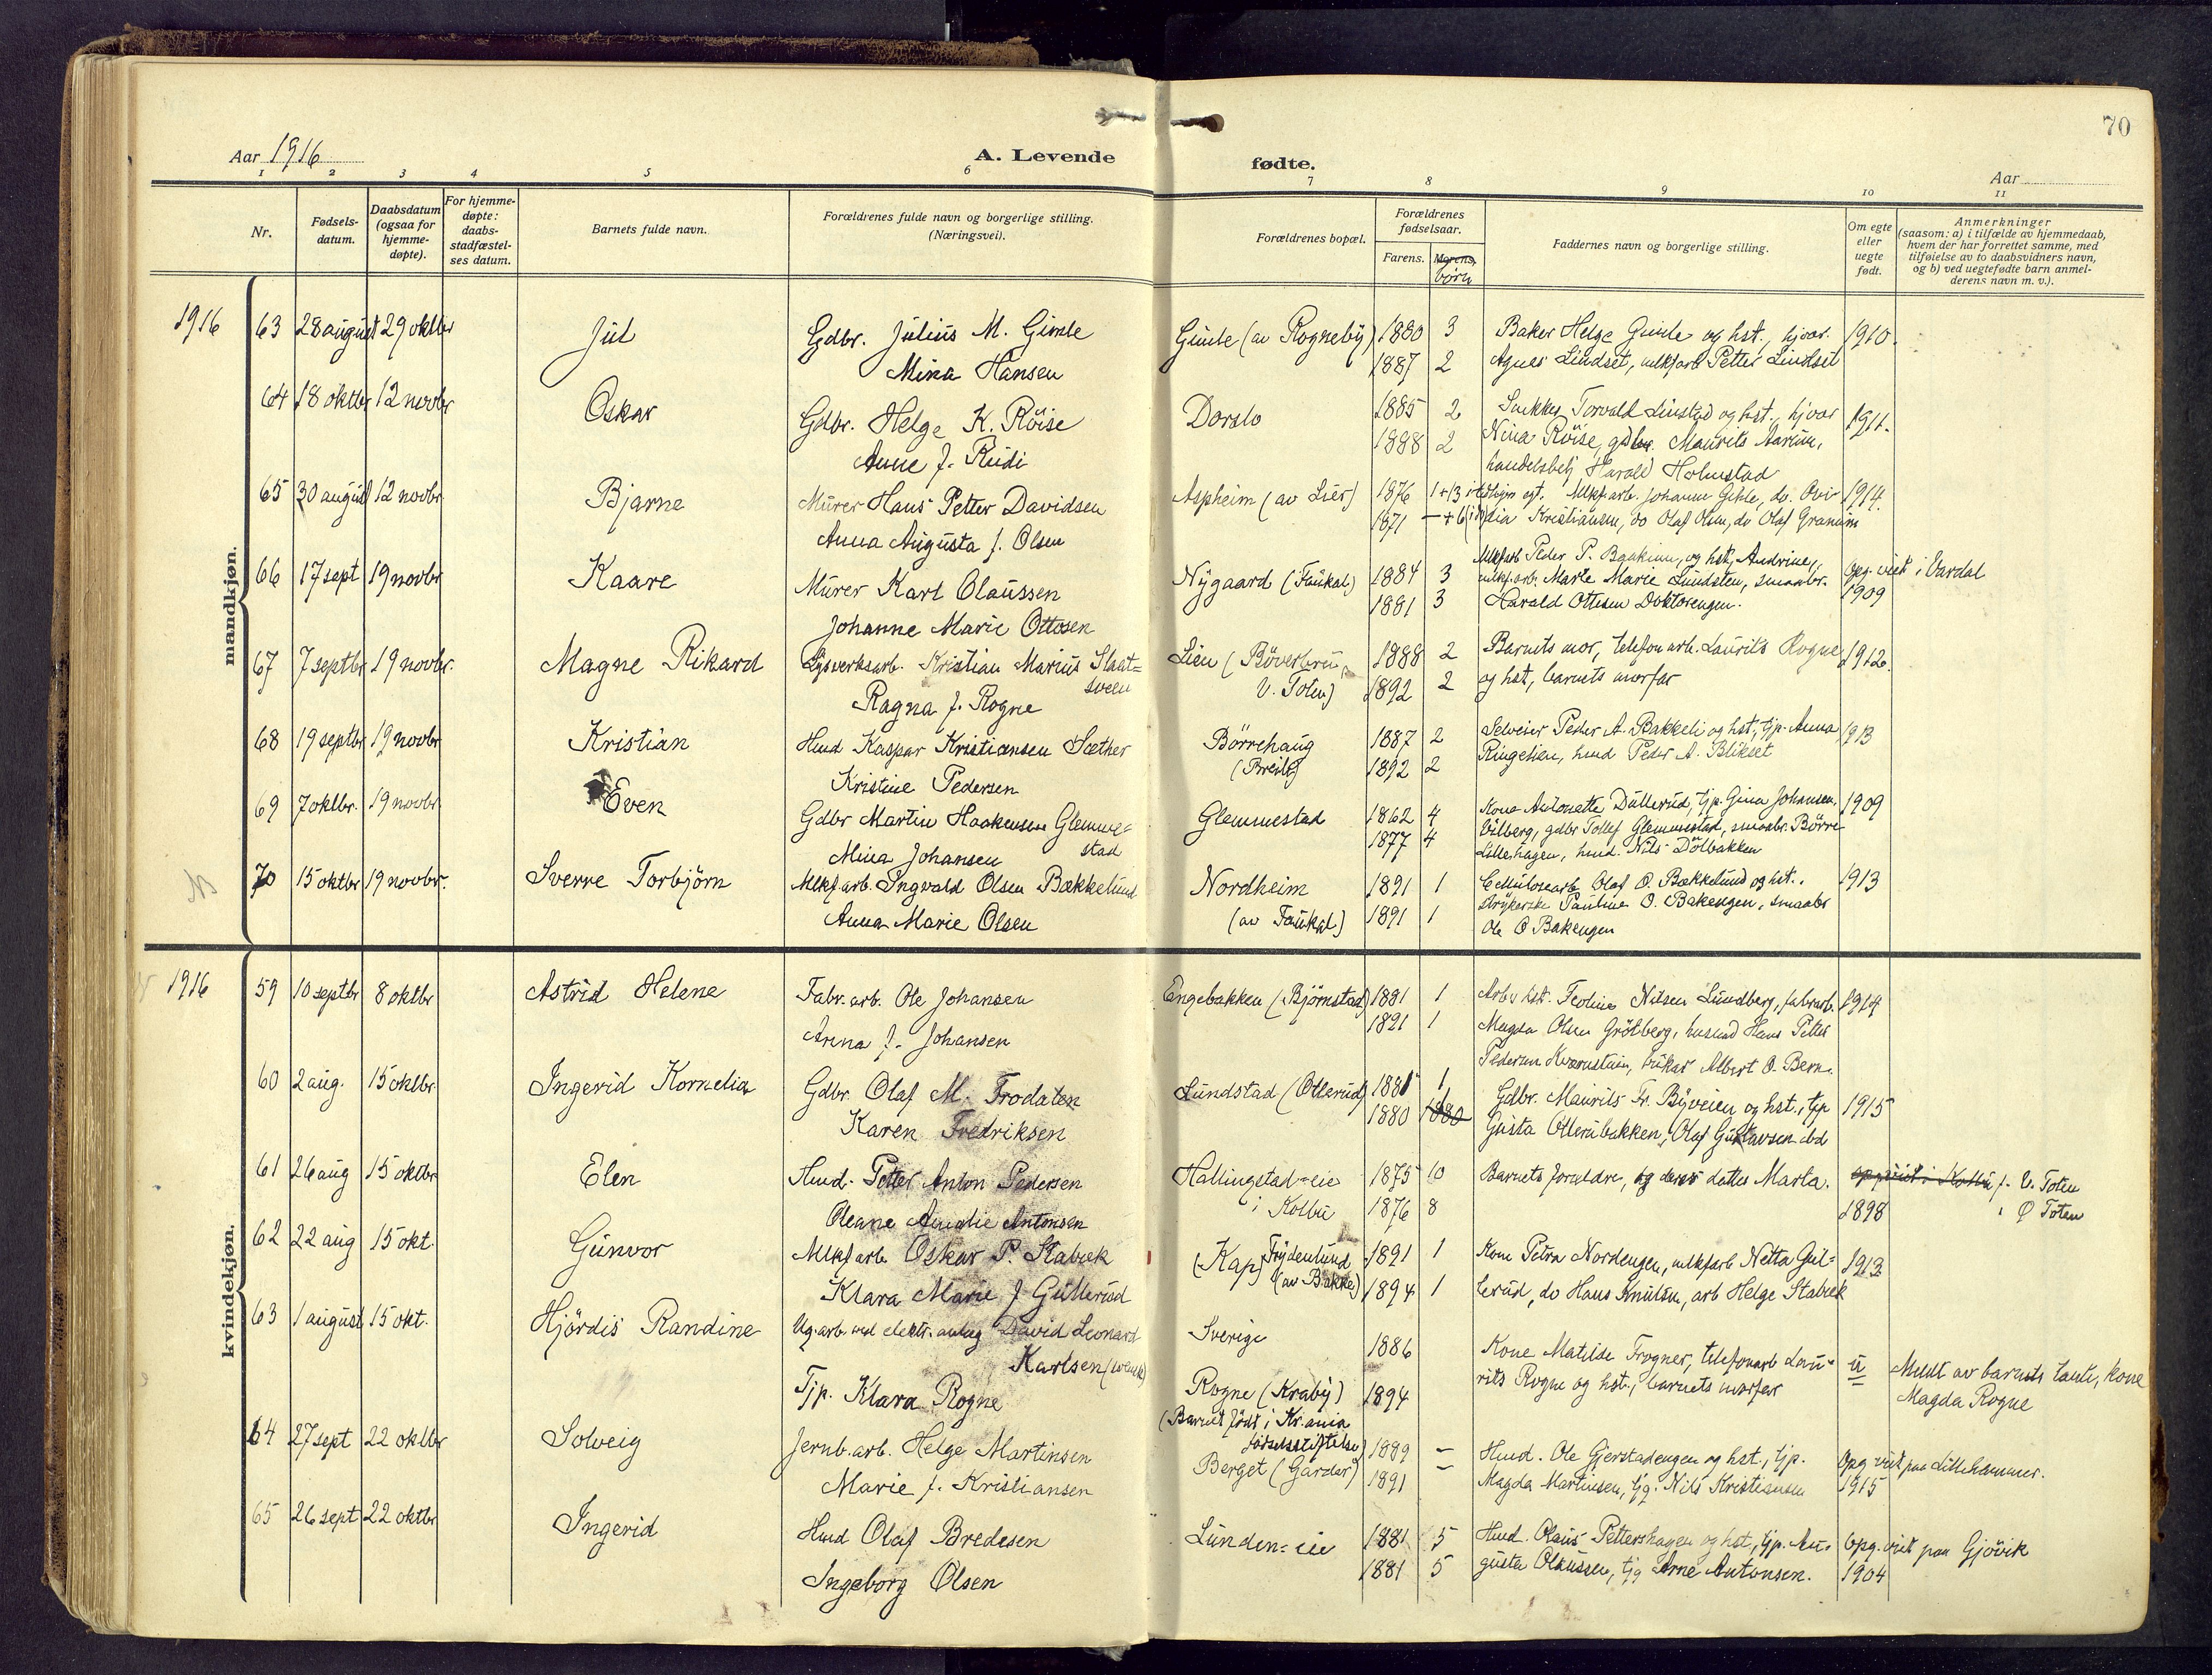 70
Aar 1916
A. Levende fødte.
Aar
1 2 3 4 5 6 7 8 9 10 11
Nr.
Fødsels-
datum.
Daabsdatum
(ogsaa for
hjemme-
døpte).
For hjemme-
døpte:
daabs-
stadfæstel-
ses datum.
Barnets fulde navn.
Forældrenes fulde navn og borgerlige stilling.
(Næringsvei).
Forældrenes bopæl.
Forældrenes
fødselsaar.
Farens. Morens.
börn
Faddernes navn og borgerlige stilling.
Om egte
eller
uegte
født.
Anmerkninger
(saasom: a) i tilfælde av hjemmedaab,
hvem der har forrettet samme, med
tilføielse av to daabsvidners navn,
og b) ved uegtefødte barn anmel-
derens navn m. v.).
mandkjøn.
1916 63 28 august 29 oktbr Jul Gdbr. Julius M. Gimle Gimle (av Rogneby) 1880 3 Baker Helge Gimle og hst., hjvar. 1910.
Mina Hansen 1887 2 Agnes Lindset, mlkfarb Petter Lindset
64 18 oktbr 12 novbr Oskar Gdbr. Helge K. Röise Dorslo 1885 2 Snekker Torvald Linstad og hst., hjvar 1911.
Anne f. Rudi 1888 2 Nina Röise, gdbr. Maurits
handelsbetj Harald Holmstad
65 30 august 12 novbr Bjarne Murer Hans Petter Davidsen Aspheim (av Lier) 1876 1+13 egt. Mlkf.arb. Johanne do. Ovi- 1914.
Anna Augusta f. Olsen 1871 -+6 dia Kristiansen, do Olaf Olsen, do Olaf Granum
66 17 sept 19 novbr Kaare Murer Karl Olaussen Nygaard (Faukal) 1884 3 Mlkfarb Peder P. og hst, Andrine, opg. viet i Vardal
Johanne Marie Ottosen 1881 3 mlkf.arb. Marie Lundsten, smaabr. 1909
Harald Ottesen Doktorengen.
67 7 septbr 19 novbr. Magne Rikard Lysverksarb. Kristian Marius Slaat=
sveen Lien (Böverbru, 1888 2 Barnets mor, telefonarb. Laurits Rogne 1912.
Ragna f. Rogne V. Toten) 1892 2 og hst, barnets morfar
68 19 septbr 19 novbr Kristian Hmd Kaspar Kristiansen Sæther Börrehaug 1887 2 Selveier Peder A. Bakkeli og hst, tjp. Anna 1913
Kristine Pedersen (Breili) 1892 2 Ringelien, hmd Peder A. Blikset
69 7 oktbr. 19 novbr Even Gdbr Martin Haakensen Glemme=
stad Glemmestad 1862 4 Kone Antonette Dullerud, tjp. Gina Johansen, 1909
Mina Johansen 1877 4 Vilberg, gdbr Tollef Glemmestad, smaabr. Börre
Lillehagen, hmd. Nils Dölbakken
70 15 oktbr 19 novbr. Sverre Torbjörn Mlkfarb. Ingvald Olsen Bækkelund Nordheim 1891 1 Cellulosearb Olaf O. Bækkelund og hst., 1913
Anna Marie Olsen (av Faukal) 1891 1 strykerske Pauline O. Bakengen, smaabr
Ole O Bakengen
kvindekjøn.
1916 59 10 septbr 8 oktbr Astrid Helene Fabr.arb. Ole Johansen Engebakken (Björnstad) 1881 1 Arb. hst. Nilsen Lundberg, fabrarb. 1914
Anna f. Johansen 1891 1 Magda Olsen Grötberg, husmd Hans Petter
Pedersen Kvernstuen, Albert O. Bern.
60 2 aug. 15 oktbr. Ingerid Kornelia Gdbr. Olaf M. Frodalen Lundstad (Otterud) 1881 1 Gdbr. Maurits Fr. Byveien og hst., tjp 1915
Karen Fredriksen 1880 1880 Gusta Otterubakken, Olaf Gustavsen dbd
61 26 aug 15 oktbr Elen Hmd. Petter Anton Pedersen Hallingstad=eie 1875 10 Barnets foreldre, og deres datter Marta. f. V. Toten
Oleane Amalie Antonsen i Kolbu 1876 8 1898 Ø Toten
62 22 aug 15 okt. Gunvor Mlkfarb Oskar P. Stabæk (Kap) Frydenlund 1891 1 Kone Petra Nordengen, mlkfarb Netta Gul= 1913
Klara Marie f Gullerud (av Bakke) 1894 1 lerud, do Hans Knutsen, arb Helge Stabæk
63 1 august 15 okt. Hjördis Randine Ug. arb. ved elektr. anlæg David Leonard
Karlsen Sverige 1886 Kone Matilde Frogner, telefonarb Lau= u Meldt av barnets tante, kone
Tjp. Klara Rogne Rogne (Kraby) 1894 rits Rogne og hst, barnets morfar Magda Rogne
(Barnet født i Kr.ania
fødselsstiftelse)
64 27 sept 22 oktbr Solveig Jernb.arb. Helge Martinsen Berget (Garder) 1889 - Hmd. Ole Gjerstadengen og hst., tjp. Opg viet paa Lillehammer.
Marie f. Kristiansen 1891 - Magda Martinsen, tjg. Nils Kristiansen 1915
65 26 sept 22 oktbr Ingerid Hmd Olaf Bredesen Lunden=eie 1881 5 Hmd. Olaus Pettershagen og hst, tjp. Au= Opg. viet paa Gjövik
Ingeborg Olsen 1881 5 gusta Olaussen, tjg Arne Antonsen. 1904